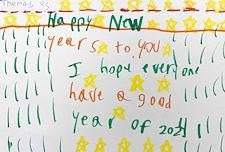 Thomas
Happy New
years to you
I hope everyone
have a good
year of 2021